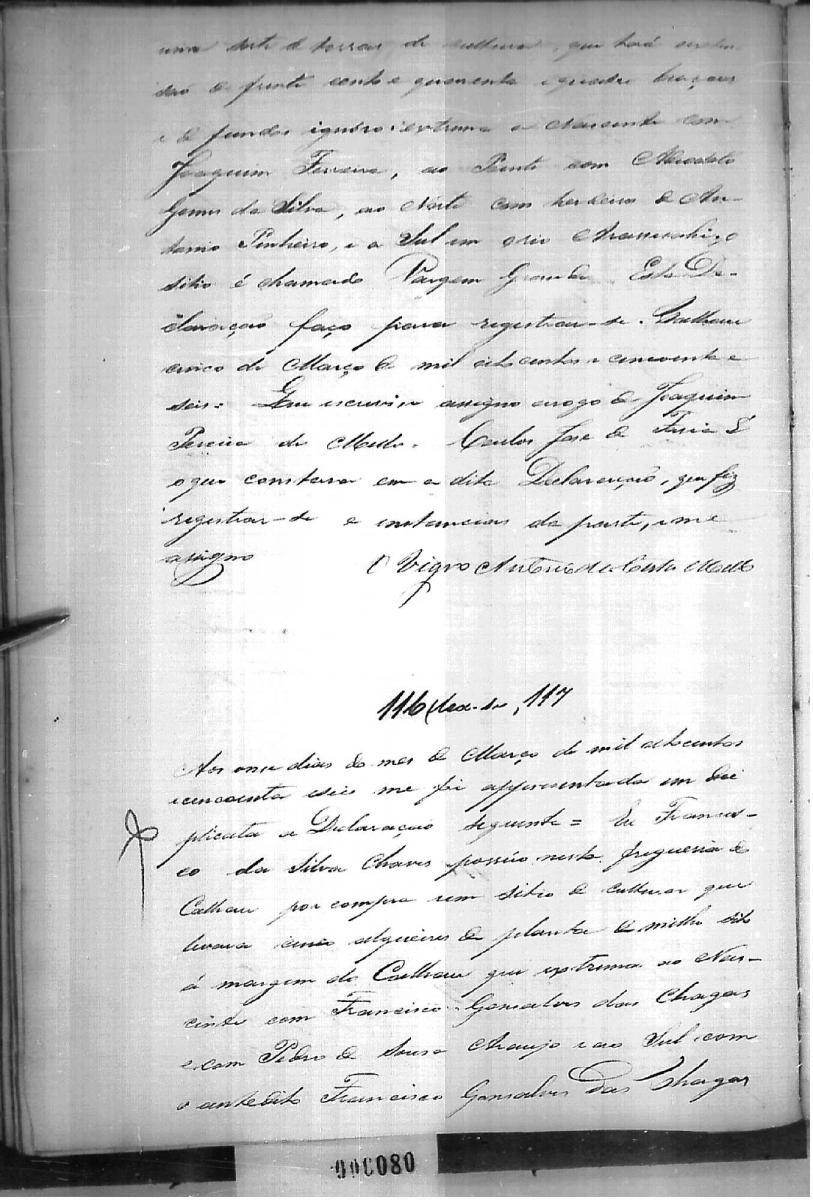 uma sorte de terras de cultura, que terá exten-
são de frente cento e quarenta e quatro braças
e de fundos extrema a Nascente com
Joaquim Ferreira, ao Poente com
Gomes da Silva, ao Norte com herdeiros de An-
tonio Pinheiro, e a Sul em
sitio é chamado Vargem Grande Esta De-
claração faço para registrar-se. Coalhau
cinco de Março de mil oitocentos e cincoenta e
seis= Que escrevi e assigno arogo de Joaquim
Pereira de Carlos José de Faria É
o que constava em a dita Declaração, que fiz
registrar-se a instancias da parte, e me
assigno O Vigro Antonio da Costa Mello
116 117
Aos onze dias do mes de Março de mil oitocentos
e cincoenta e seis me foi appresentada em du
plicata a Declaração seguinte= Eu Francis-
co da Silva Chaves possúo nesta freguesia de
Coalhau por compra um sitio de culturar que
levara cinco alqueires de planta de milho sito
á margem do Coalhau que extrema ao Nas-
cente com Francisco Gonsalves das Chagas
e com Pedro de Sousa Araujo e ao Sul com
o antedito Francisco Gonsalves Das Chagas
000080